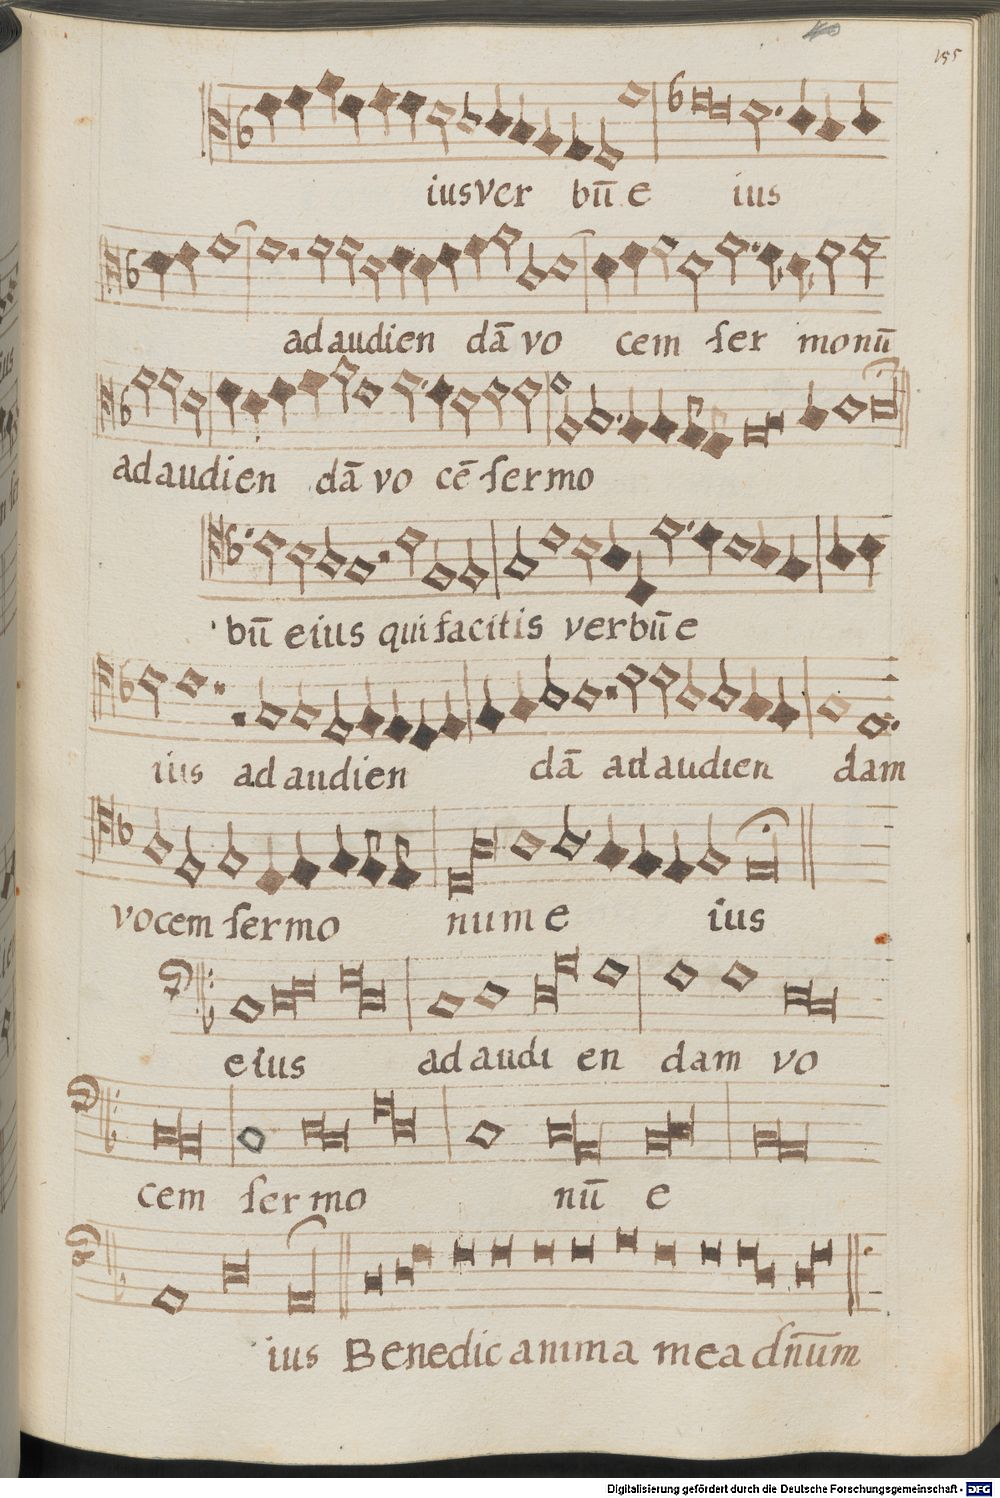 155
iusver bū e ius
ad audien dā vo cem ſer monū
ad audien dā vo cē ſermo
bū eius qui facitis verbū e
ius ad audien dā ad audien dam
vocem ſermo num e ius
eius ad audi en dam vo
cem ſer mo nū e
ius Benedic anima mea dn̄um
Digitalisierung gefördert durch die Deutsche Forschungsgemeinschaft - DFG